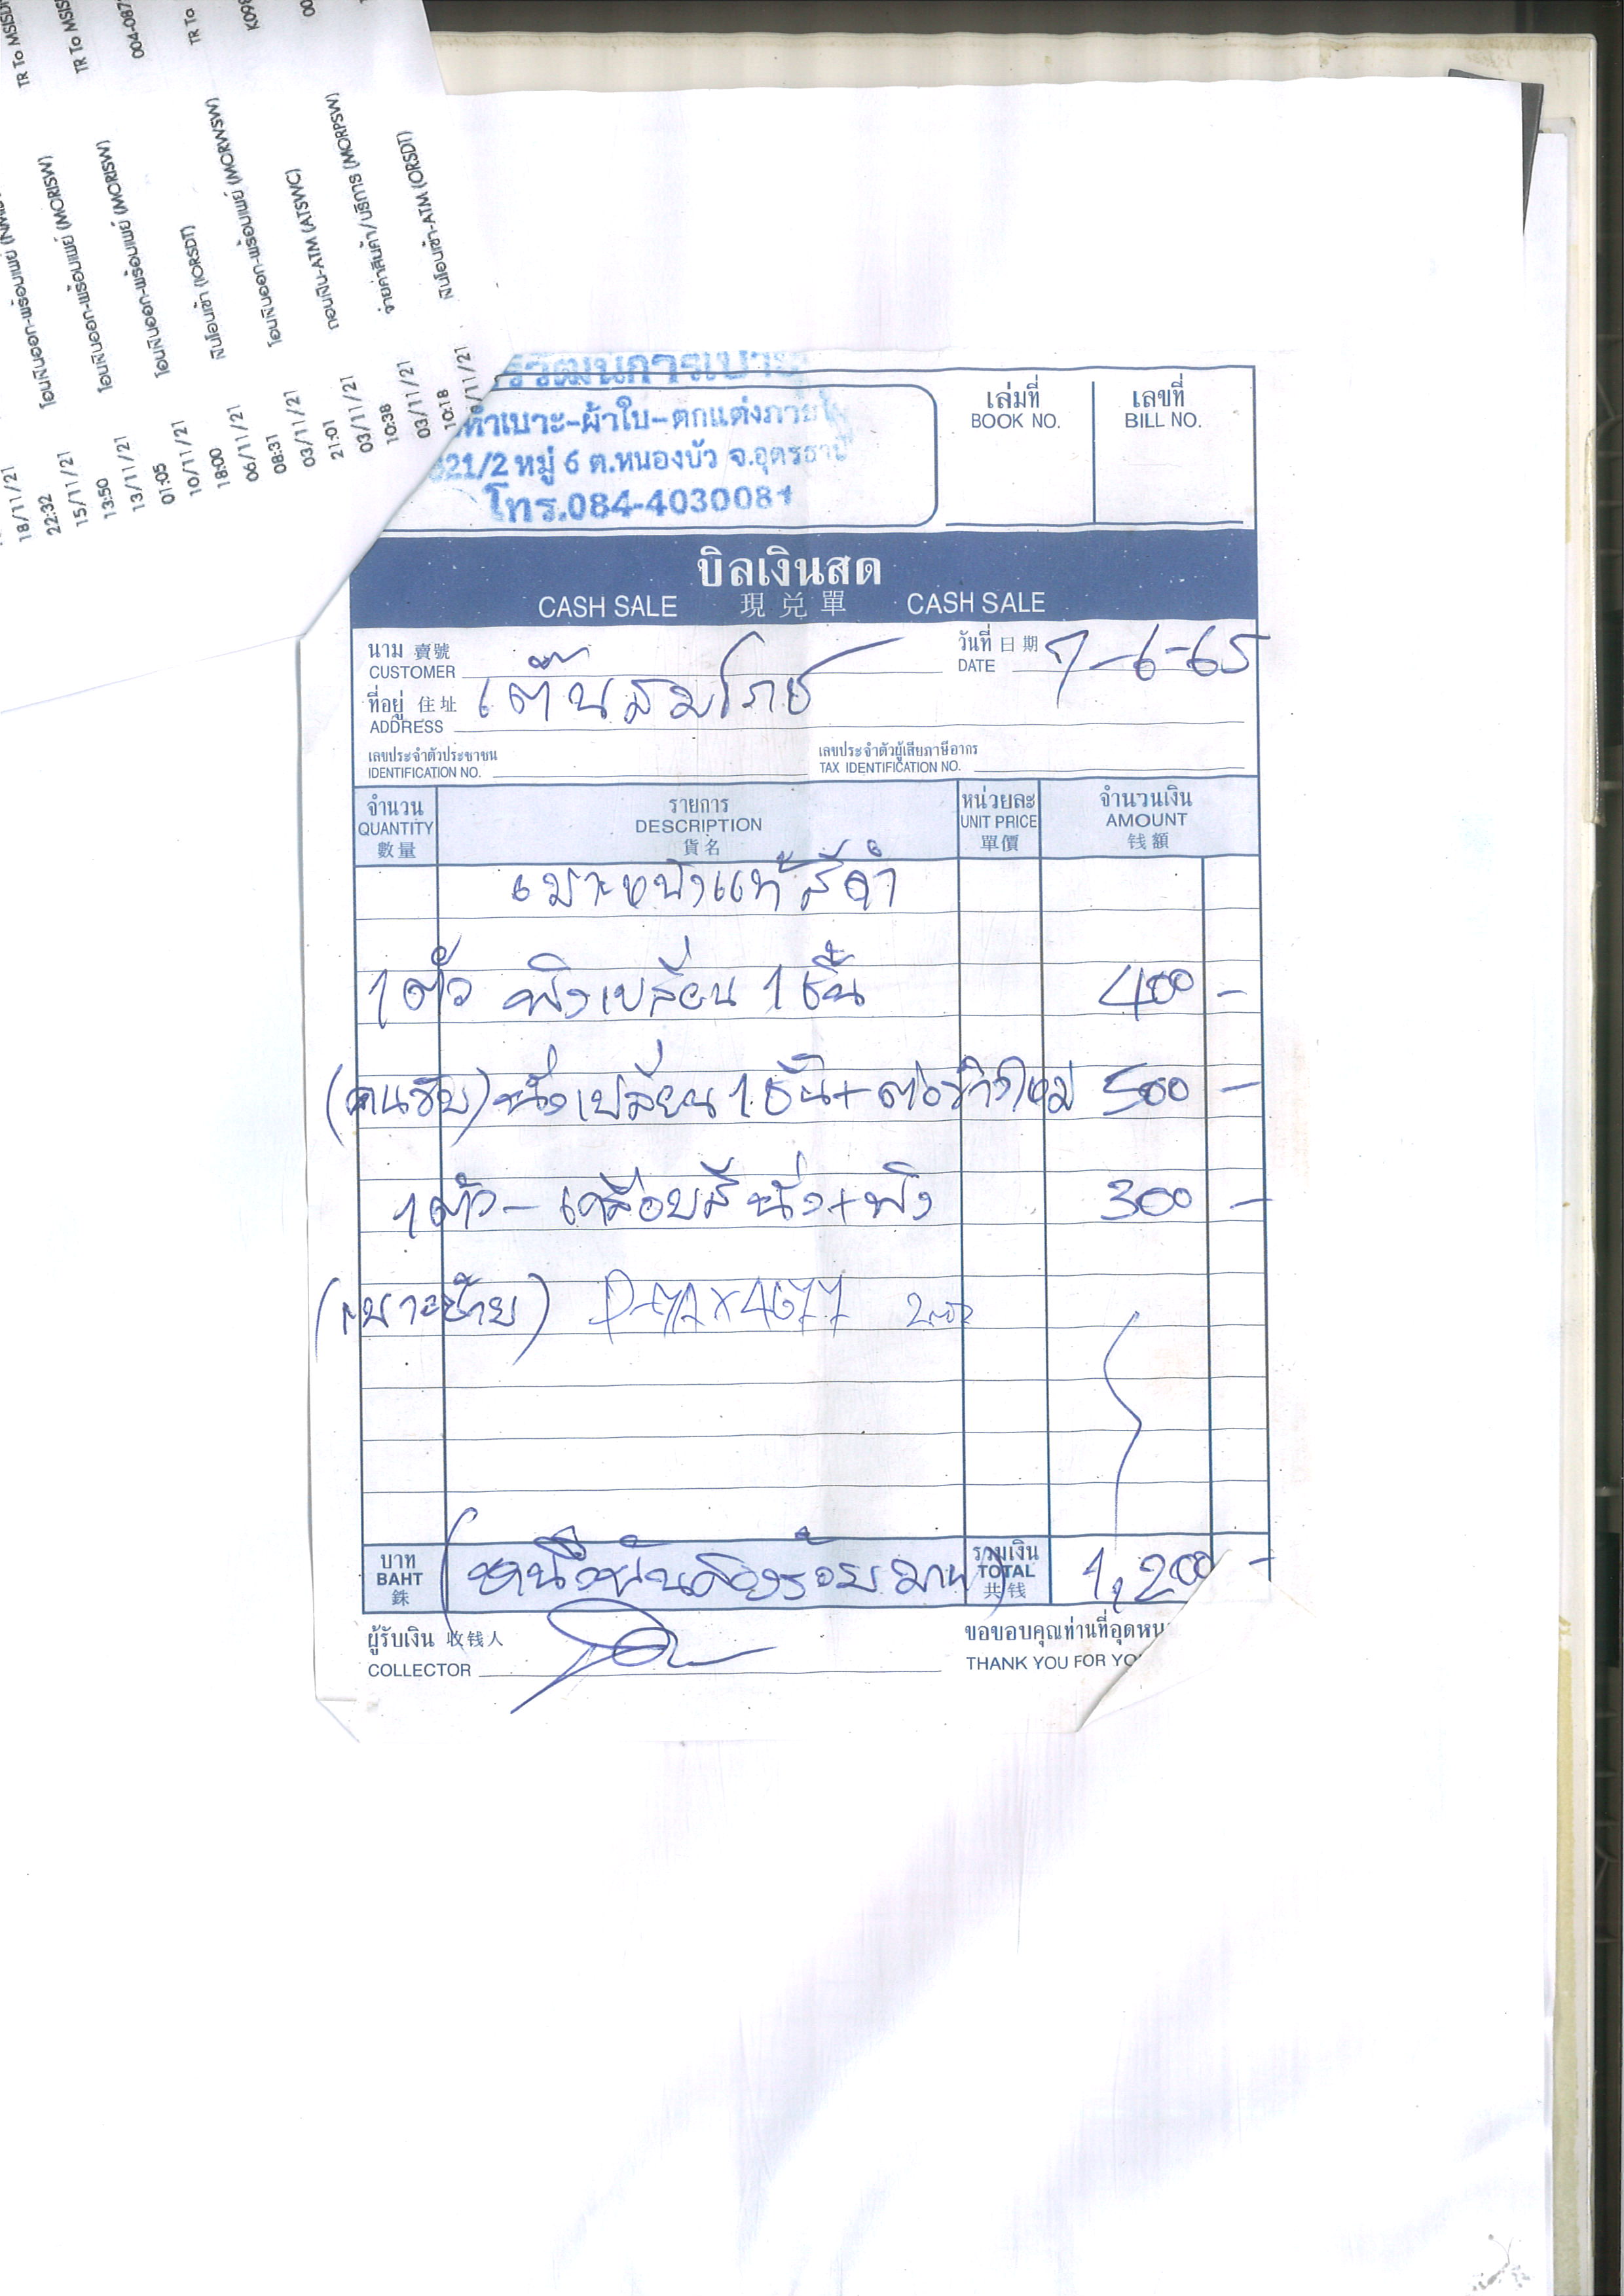 TR To MSISD
18/11/21
22:32
โอนเงินออก-พร้อมเพย์ (MORISW)
TR To MSIS
15/11/21
13:50
โอนเงินออก-พร้อมเพย์ (MORISW)
004-087
13/11/21
01:05
โอนเงินออก-พร้อมเพย์ (MORISW)
TR To
10/11/21
18:00
เงินโอนเข้า (IORSDT)
06/11/21
08:31
โอนเงินออก-พร้อมเพย์ (MORWSW)
03/11/21
21:01
ถอนเงิน-ATM (ATSWC)
03/11/21
10:38
จ่ายค่าสินค้า/บริการ (MORPSW)
03/11/21
10:18
เงินโอนเข้า-ATM (ORSDT)
รวัฒนการเบาะ
ทำเบาะ-ผ้าใบ-ตกแต่งภายใน
321/2 หมู่ 6 ต.หนองบัว จ.อุดรธานี
โทร.084-4030081
เล่มที่ เลขที่
BOOK NO. BILL NO.
บิลเงินสด
CASH SALE 現兑單 CASH SALE
นาม 賣號
CUSTOMER
วันที่ 日期 7-6-65
DATE
ที่อยู่ 住址
ADDRESS
เลขประจำตัวประชาชน เลขประจำตัวผู้เสียภาษีอากร
IDENTIFICATION NO. TAX IDENTIFICATION NO.
จำนวน รายการ หน่วยละ จำนวนเงิน
QUANTITY DESCRIPTION UNIT PRICE AMOUNT
數量 貨名 單價 钱額
เบาะหนังแท้สีดำ
1ตัว พิงเปลี่ยน 1 ชิ้น 400 -
(คนขับ) นั่งเปลี่ยน 1 ชิ้น+ 500 -
1 ตัว - เคลือบสี นั่ง+พิง 300 -
(เบาะซ้าย)
บาท
BAHT
銖
(หนึ่งพันสองร้อยบาท)
รวมเงิน
TOTAL
共钱
1,200 -
ผู้รับเงิน 收钱人 ขอขอบคุณท่านที่อุดหนุ
COLLECTOR THANK YOU FOR YO